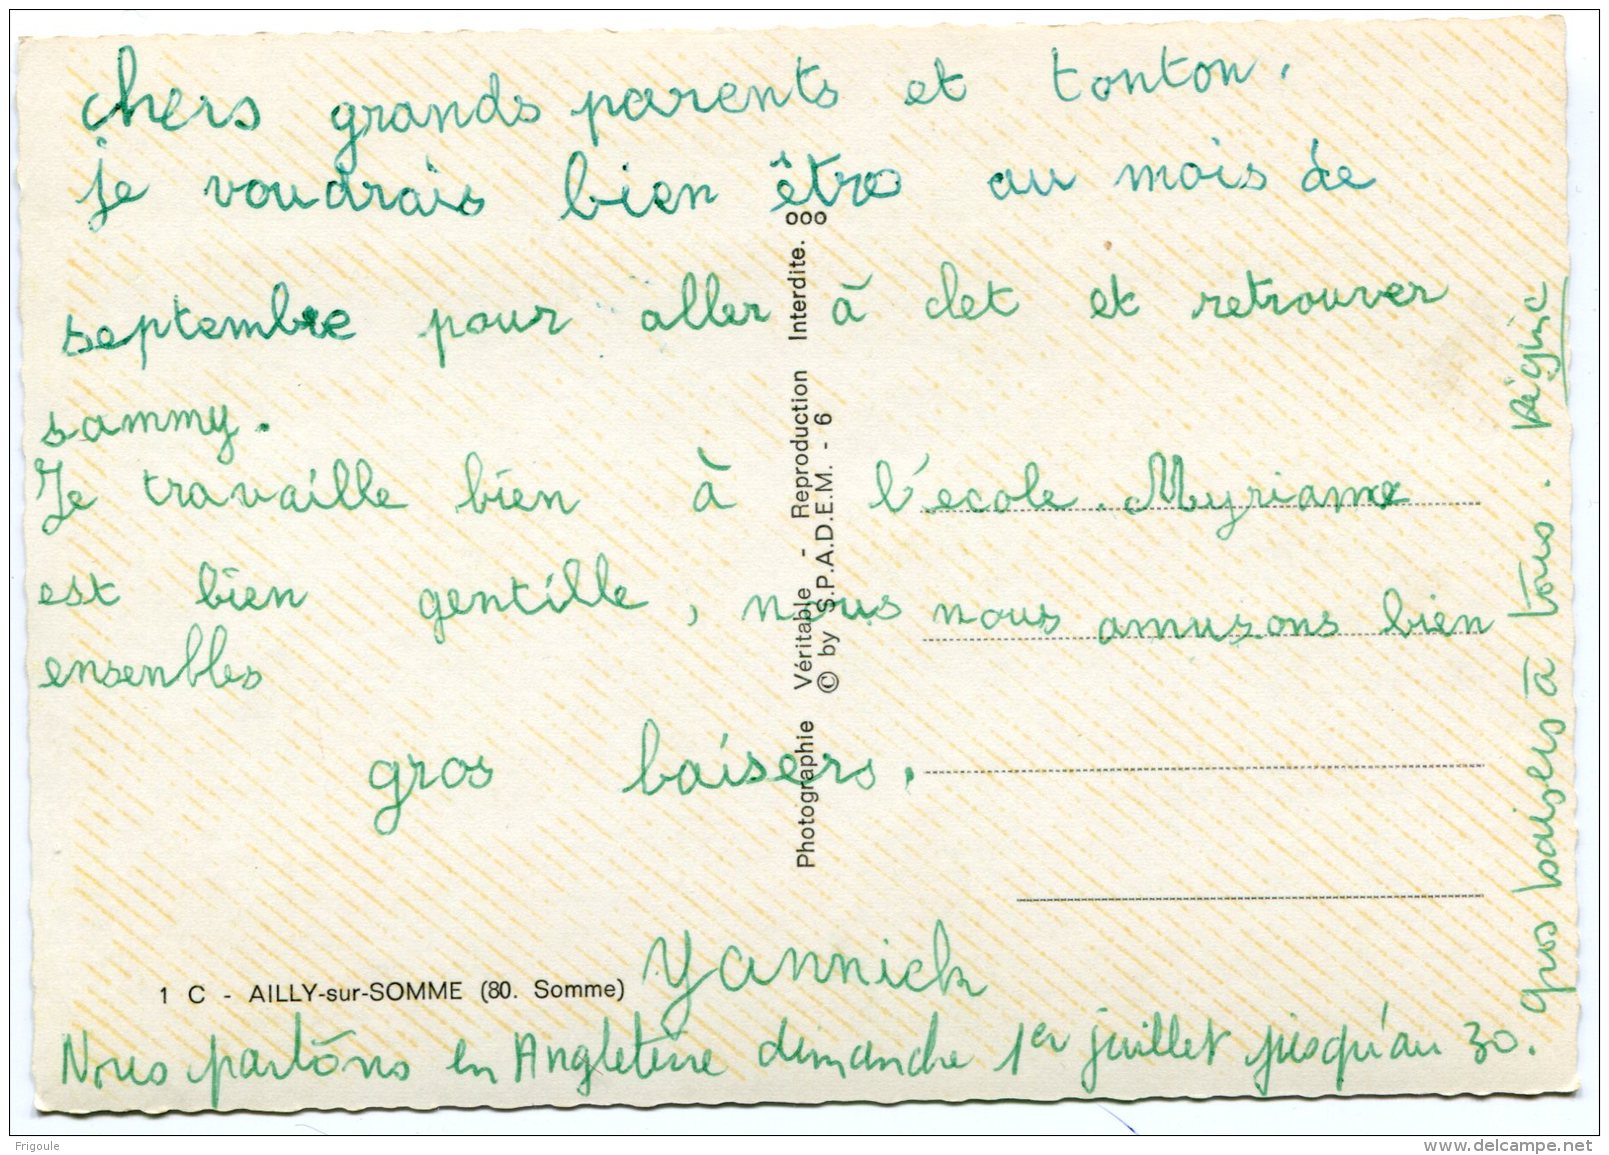 chers grands parents et tonton.
je voudrais bien être au mois de
septembre pour aller à clet et retrouver
sammy.
Je travaille bien à l'ecole. Myriame
est bien gentille, nous nous amusons bien
ensenbles
gros baisers.
Yannick
1 C - AILLY-sur-SOMME (80. Somme)
Nous partons en Angleterre dimanche 1er juillet jusqu'au 30.
gros baisers à tous. Régine
Photographie Véritable - Reproduction Interdite.
© by S.P.A.D.E.M. - 6
ooo
Frigoule
www.delcampe.net